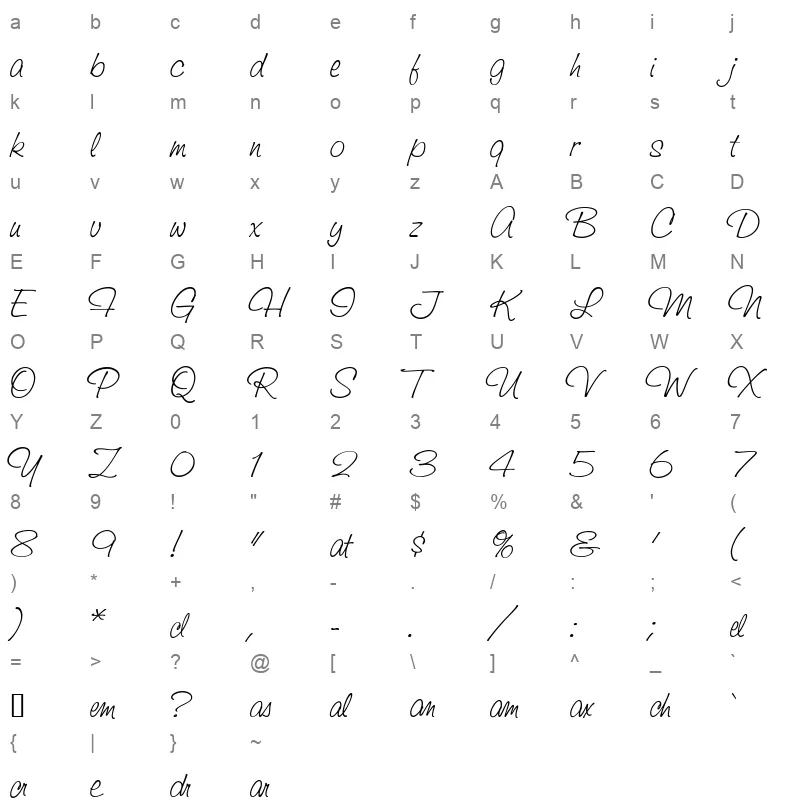 a b c d e f g h i j
a b c d e f g h i j
k l m n o p q r s t
k l m n o p q r s t
u v w x y z A B C D
u v w x y z A B C D
E F G H I J K L M N
E F G H I J K L M N
O P Q R S T U V W X
O P Q R S T U V W X
Y Z 0 1 2 3 4 5 6 7
Y Z 0 1 2 3 4 5 6 7
8 9 ! " # $ % & ' (
8 9 ! " at $ % & ' (
) * + , - . / : ; <
) * cl , - . / : ; el
= > ? @ [ \ ] ^ _ `
▯ em ? as al an am ax ch `
{ | } ~
cr e dr ar